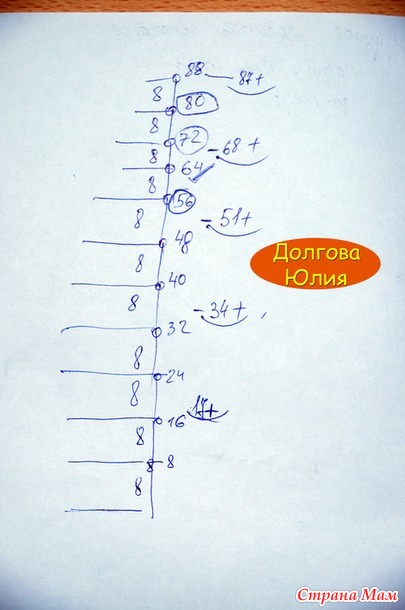 88 — 87+
8
80
8
72
- 68+
8
64
8
56
8
- 51+
48
8
40
8
- 34+
32
8
24
8
17+
16
8
8 8
8
Долгова
Юлия
Страна Мам